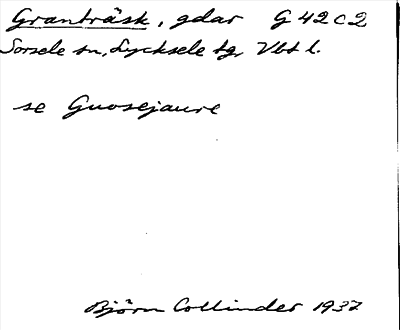 Granträsk, gdar G 42 C 2
Sorsele sn, Lycksele tg, Vbt l.
se Guosejaure
Björn Collinder 1937